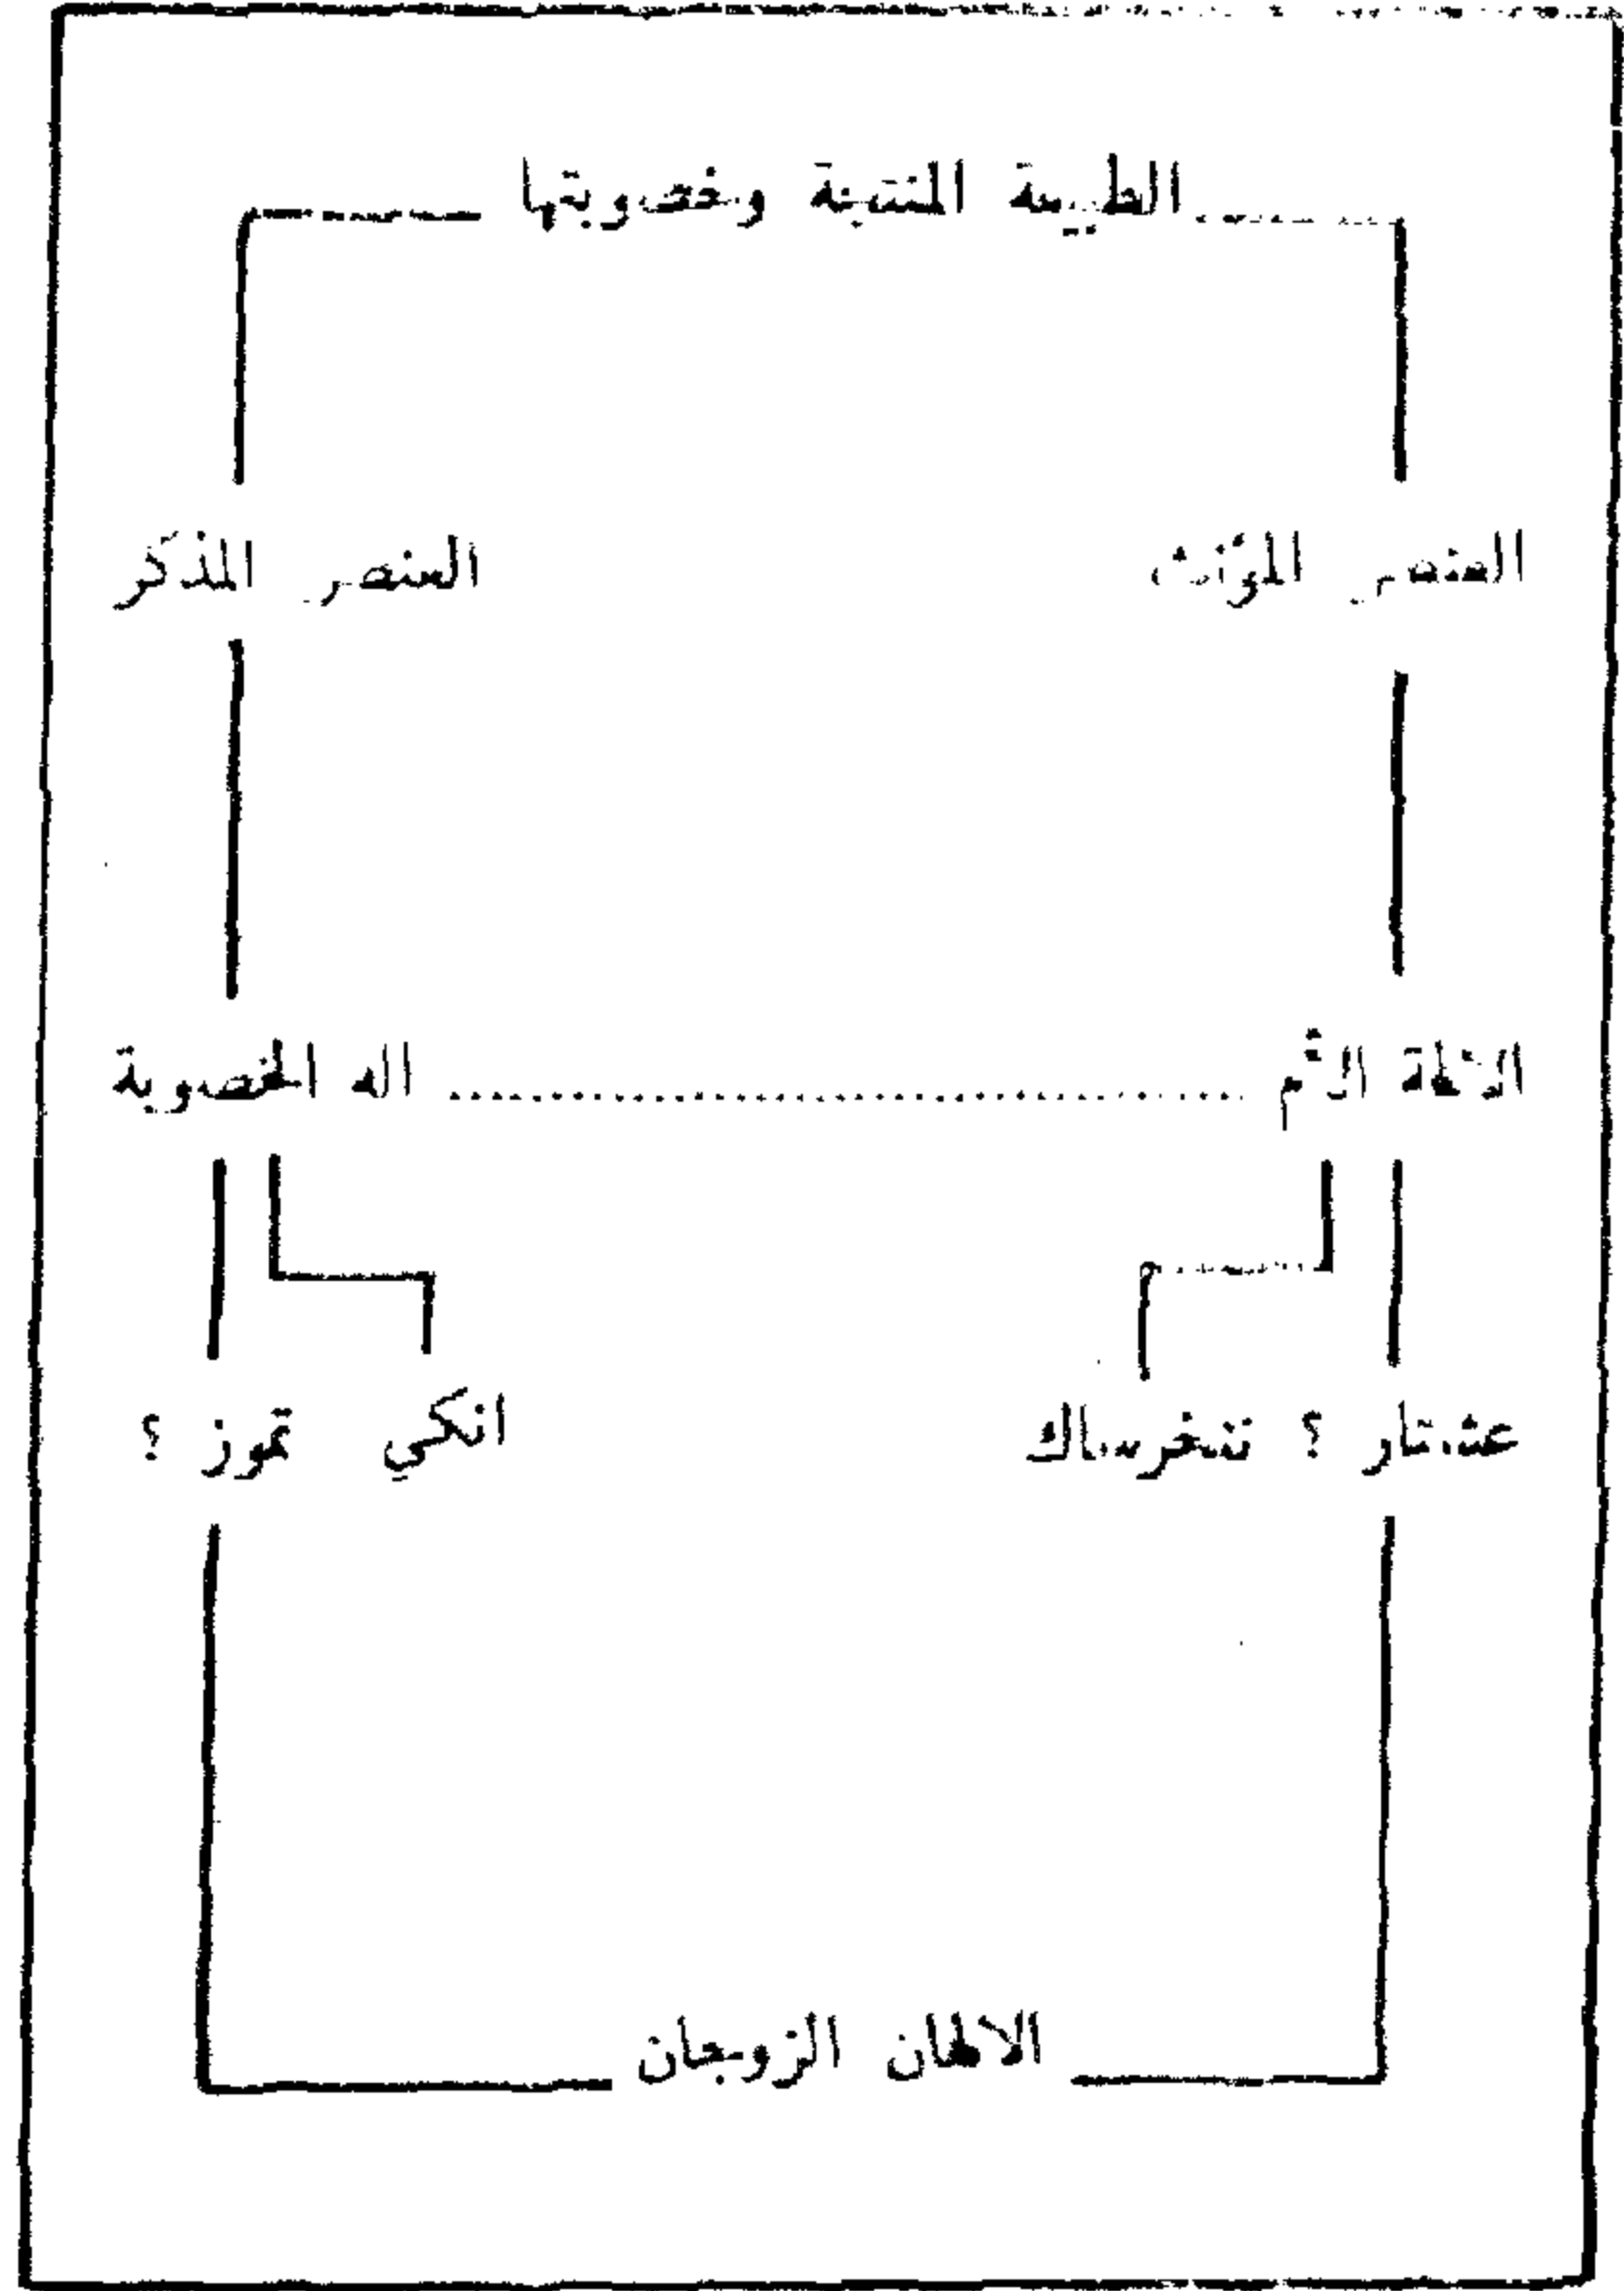 الطبيعة المنتجة وخصوبتها
العنصر المؤنث
العنصر المذكر
الالهة الأم
اله الخصوبة
عشتار ؟ ننخرساك
انكي تموز ؟
الالهان الزوجان